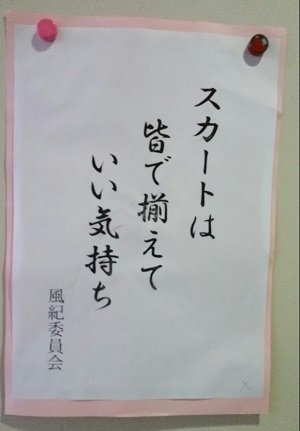 スカートは
皆で揃えて
いい気持ち
風紀委員会